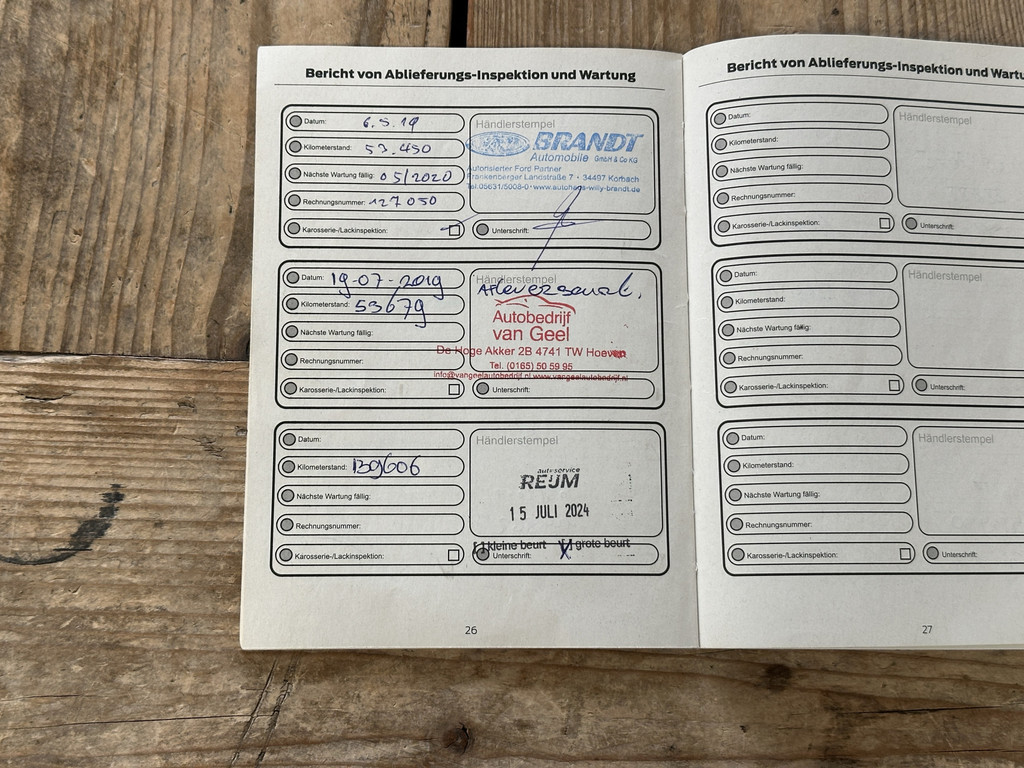 Bericht von Ablieferungs-Inspektion und Wartung
Datum: 6.5.19
Kilometerstand: 53.450
Nächste Wartung fällig: 05/2020
Rechnungsnummer: 127050
Karosserie-/Lackinspektion:
Händlerstempel
Ford
BRANDT
Automobile GmbH & Co KG
Autorisierter Ford Partner
Frankenberger Landstraße 7 · 34497 Korbach
Tel.05631/5008-0 · www.autohaus-willy-brandt.de
Unterschrift:
Datum: 19-07-2019
Kilometerstand: 53679
Nächste Wartung fällig:
Rechnungsnummer:
Karosserie-/Lackinspektion:
Händlerstempel
Afleversbeurt.
Autobedrijf
van Geel
De Hoge Akker 2B 4741 TW Hoeven
Tel. (0165) 50 59 95
info@vangeelautobedrijf.nl www.vangeelautobedrijf.nl
Unterschrift:
Datum:
Kilometerstand: 139606
Nächste Wartung fällig:
Rechnungsnummer:
Karosserie-/Lackinspektion:
Händlerstempel
autoservice
REIJM
15 JULI 2024
[ ] kleine beurt [X] grote beurt
Unterschrift:
26
Bericht von Ablieferungs-Inspektion und Wartu
Datum:
Kilometerstand:
Nächste Wartung fällig:
Rechnungsnummer:
Karosserie-/Lackinspektion:
Händlerstempel
Unterschrift:
Datum:
Kilometerstand:
Nächste Wartung fällig:
Rechnungsnummer:
Karosserie-/Lackinspektion:
Händlerstempel
Unterschrift:
Datum:
Kilometerstand:
Nächste Wartung fällig:
Rechnungsnummer:
Karosserie-/Lackinspektion:
Händlerstempel
Unterschrift:
27